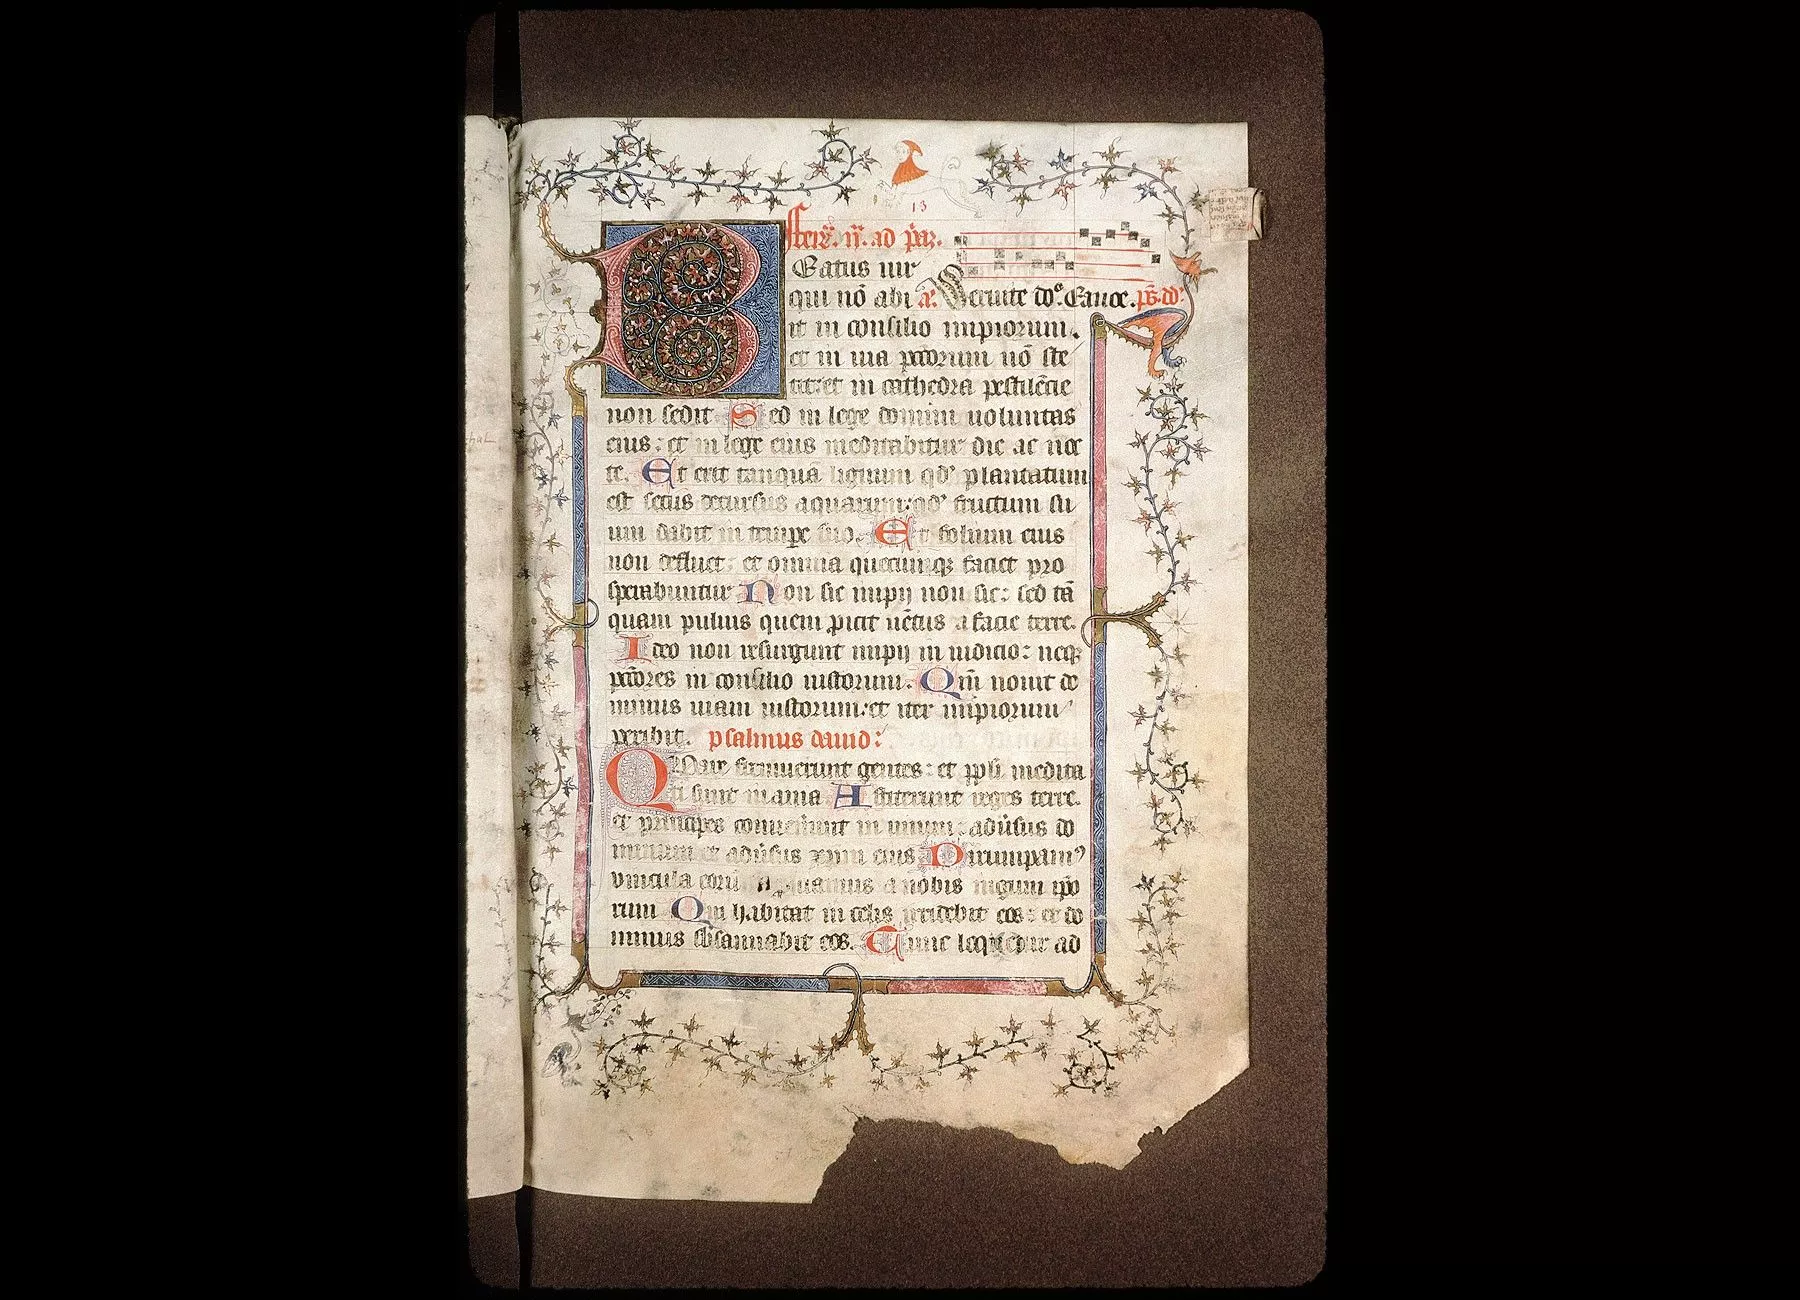 13
feria. ij. ad p̄az.
Beatus uir
qui nō abi a. Seruite dō. Euouae. ps. dd.
it in consilio impiorum.
et in uia pc̄corum nō ste
tit: et in cathedra pestilēcie
non sedit. Sed in lege domini uoluntas
eius: et in lege eius meditabitur die ac noc
te. Et erit tanquā lignum qd̓ plantatum
est secus decursus aquarum: qd̓ fructum su
um dabit in temꝑe suo. Et folium eius
non defluet: et omnia quecumqꝫ faciet pro
sperabuntur Non sic impij non sic: sed tā
quam puluis quem ꝓicit uētus a facie terre.
Ideo non resurgunt impij in iudicio: neqꝫ
pc̄cores in consilio iustorum. Qm̄ nouit do
minus uiam iustorum: et iter impiorum
peribit. psalmus dauid:
Quare fremuerunt gentes: et ppl̓i medita
ti sunt inania Astiterunt reges terre.
et principes conuenerunt in unum: aduersus do
minum et aduersus xp̄m eius Dirumpamꝰ
vincula eorum a nobis iugum ip̄o
rum Qui habitat in celis irridebit eos: et do
minus sb̓sannabit eos. Tunc loquetur ad